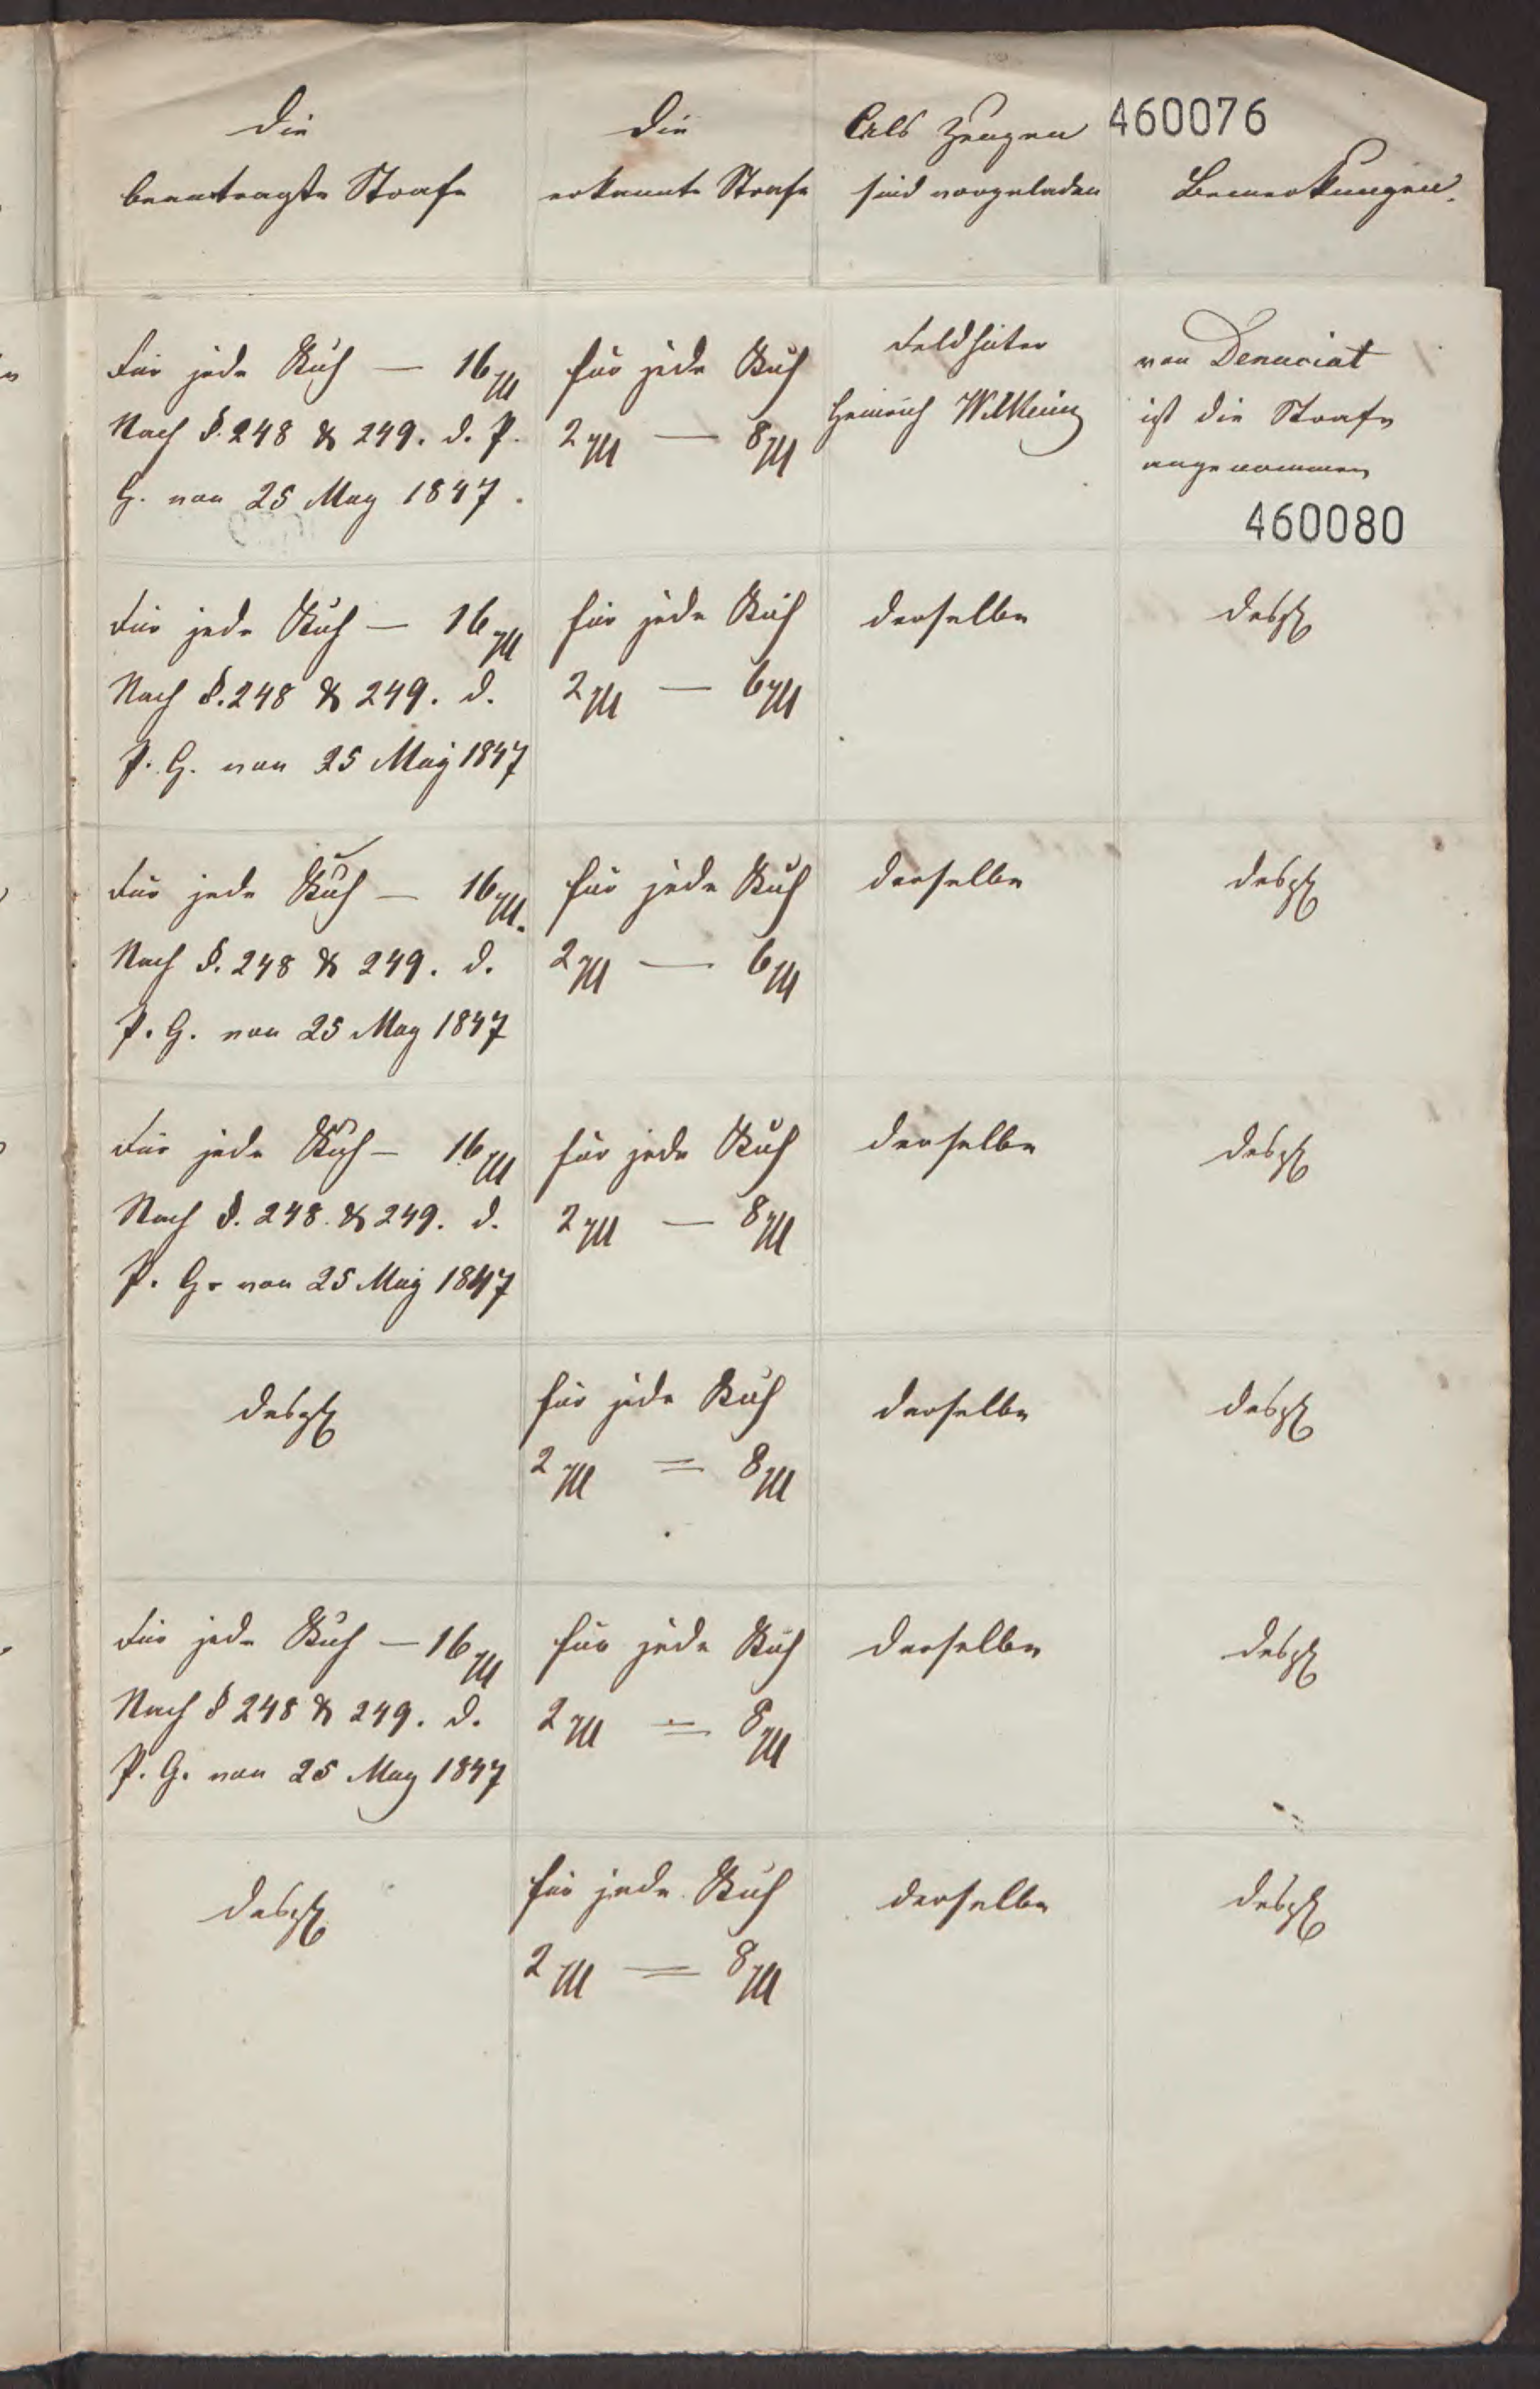 Die
beantragte Strafe
Die
erkannte Strafe
Als Zeugen
sind vorgeladen
460076
Bemerkungen.
Für jede Kuh — 16
Nach §. 248 & 249. d. P.
G. von 25 May 1847.
für jede Kuh
2 — 8
Feldhüter
Heinrich
von Denunciat
ist die Strafe
angenommen
460080
Für jede Kuh — 16
Nach §. 248 & 249. d.
P. G. von 25 May 1847
für jede Kuh
2 — 6
derselbe
desgl
Für jede Kuh — 16
Nach §. 248 & 249. d.
P. G. von 25 May 1847
für jede Kuh
2 — 6
derselbe
desgl
Für jede Kuh — 16
Nach §. 248. & 249. d.
P. G. von 25 May 1847
für jede Kuh
2 — 8
derselbe
desgl
desgl
für jede Kuh
2 = 8
derselbe
desgl
Für jede Kuh — 16
Nach § 248 & 249. d.
P. G. von 25 May 1847
für jede Kuh
2 = 8
derselbe
desgl
desgl
für jede Kuh
2 = 8
derselbe
desgl